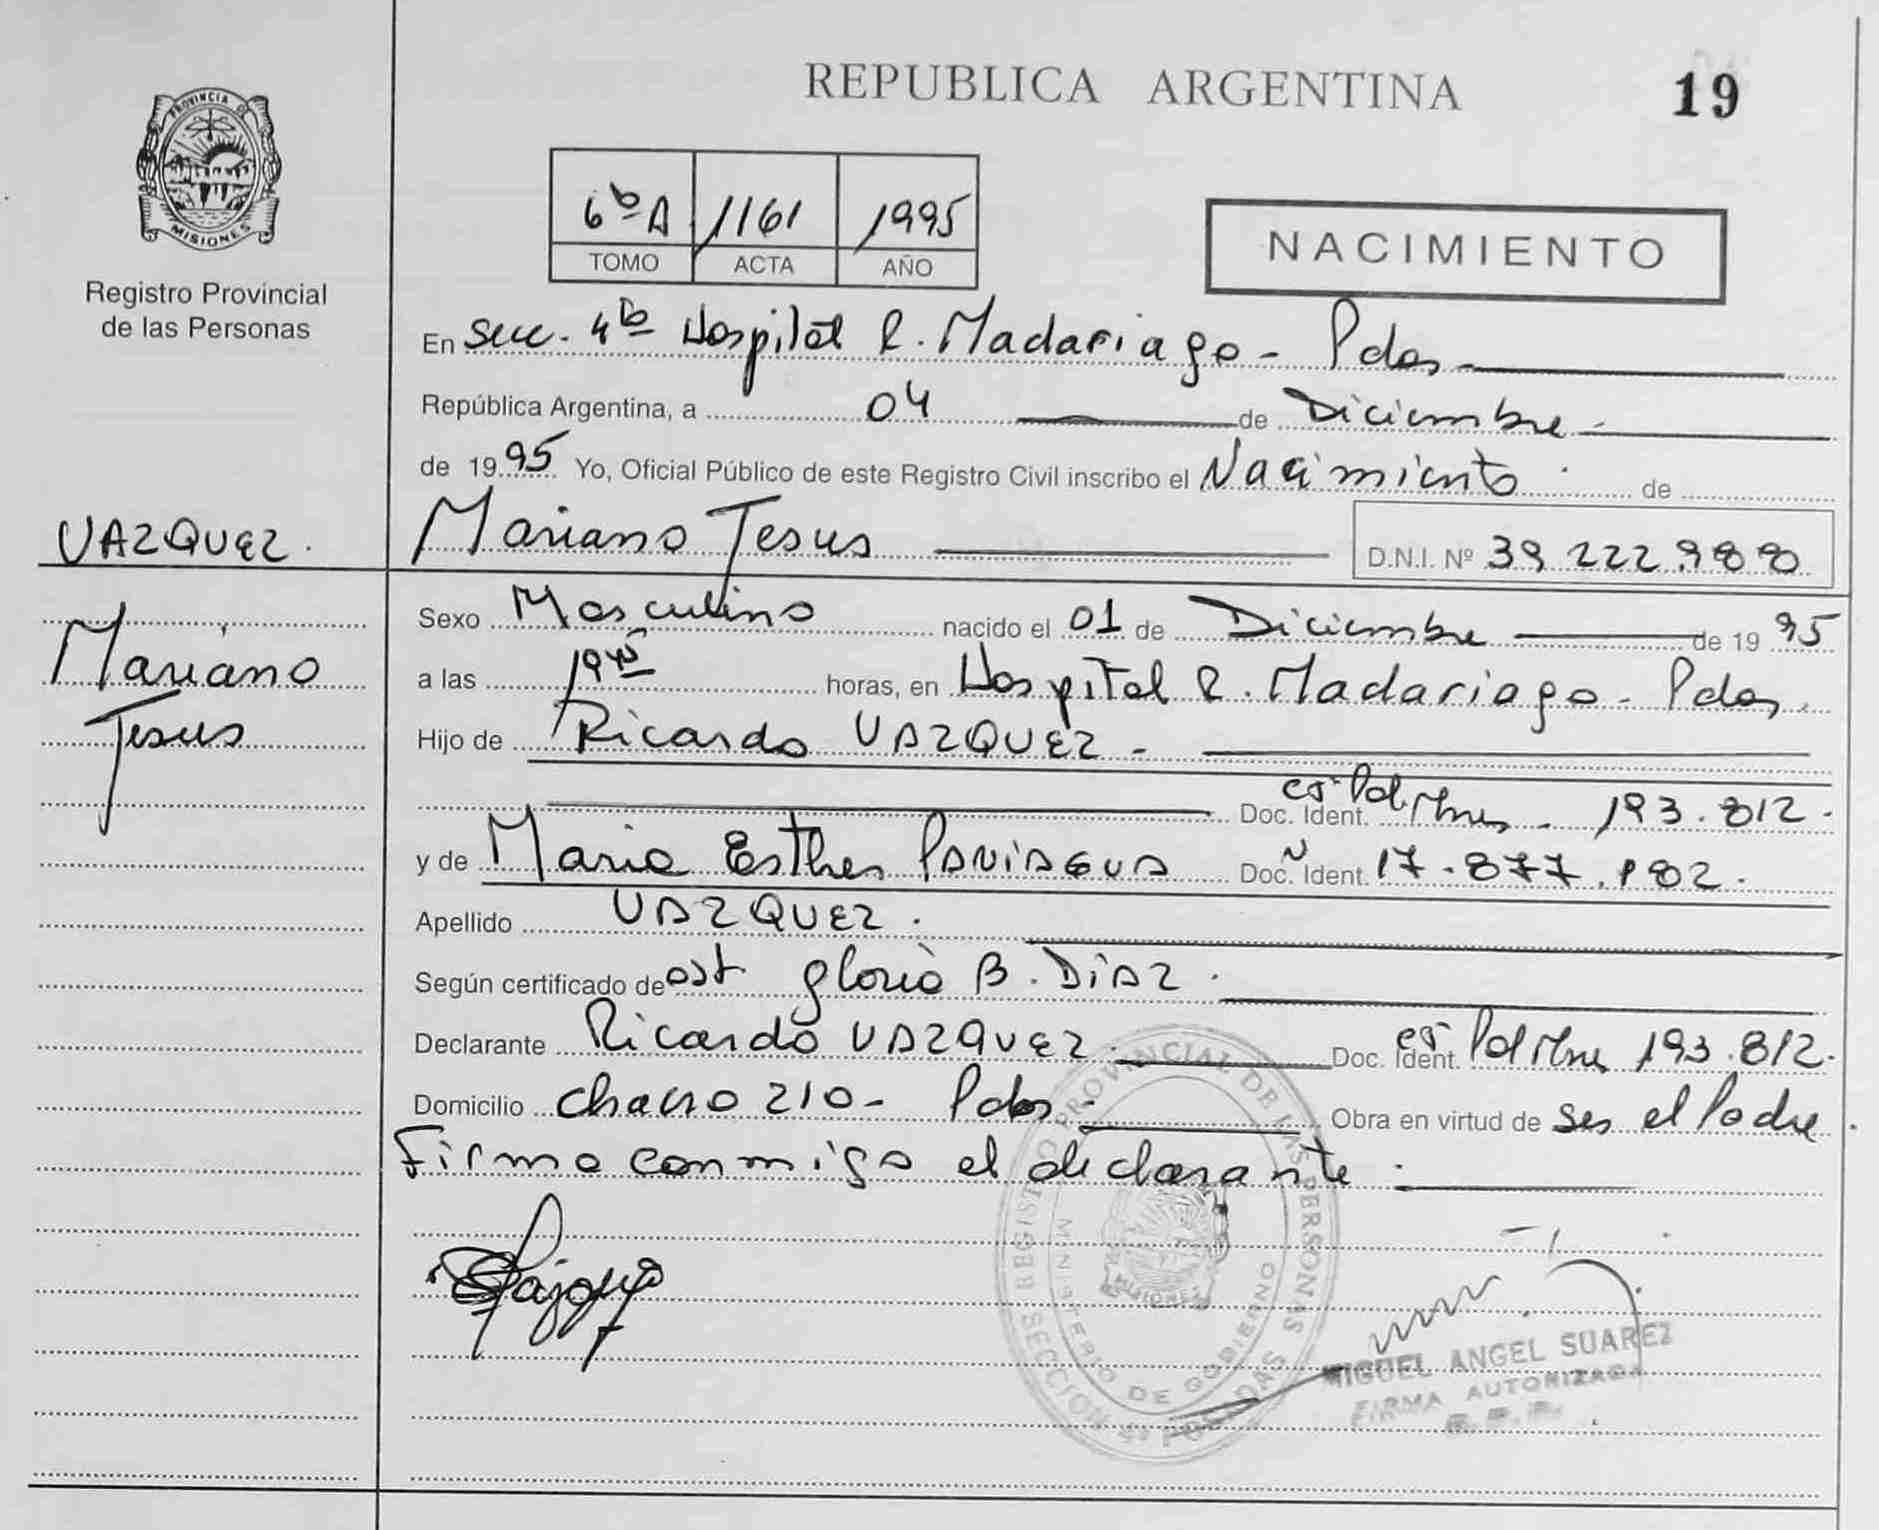 REPUBLICA ARGENTINA
19
PROVINCIA DE
MISIONES
Registro Provincial
de las Personas
6ª A 1161 1995
TOMO ACTA AÑO
NACIMIENTO
En Secc. 4ª Hospital R. Madariaga - Pdas
República Argentina, a 04 de Diciembre
de 1995 Yo, Oficial Público de este Registro Civil inscribo el Nacimiento de
VAZQUEZ.
Mariano Jesus D.N.I. Nº 39.222.980
Mariano
Jesus
Sexo Masculino nacido el 01 de Diciembre de 1995
a las horas, en Hospital R. Madariaga - Pdas.
Hijo de Ricardo VAZQUEZ -
Doc. Ident. 193.812.
y de Maria Esther PANIAGUA Doc. Ident. 17.877.182.
Apellido VAZQUEZ.
Según certificado de obst Gloria B. DIAZ.
Declarante Ricardo VAZQUEZ. Doc. Ident. 193.812.
Domicilio chacra 210 - Pdas. Obra en virtud de ser el Padre.
Firma conmigo el declarante.
REGISTRO PROVINCIAL DE LAS PERSONAS
MINISTERIO DE GOBIERNO
MISIONES
SECCION POSADAS
MIGUEL ANGEL SUAREZ
FIRMA AUTORIZADA